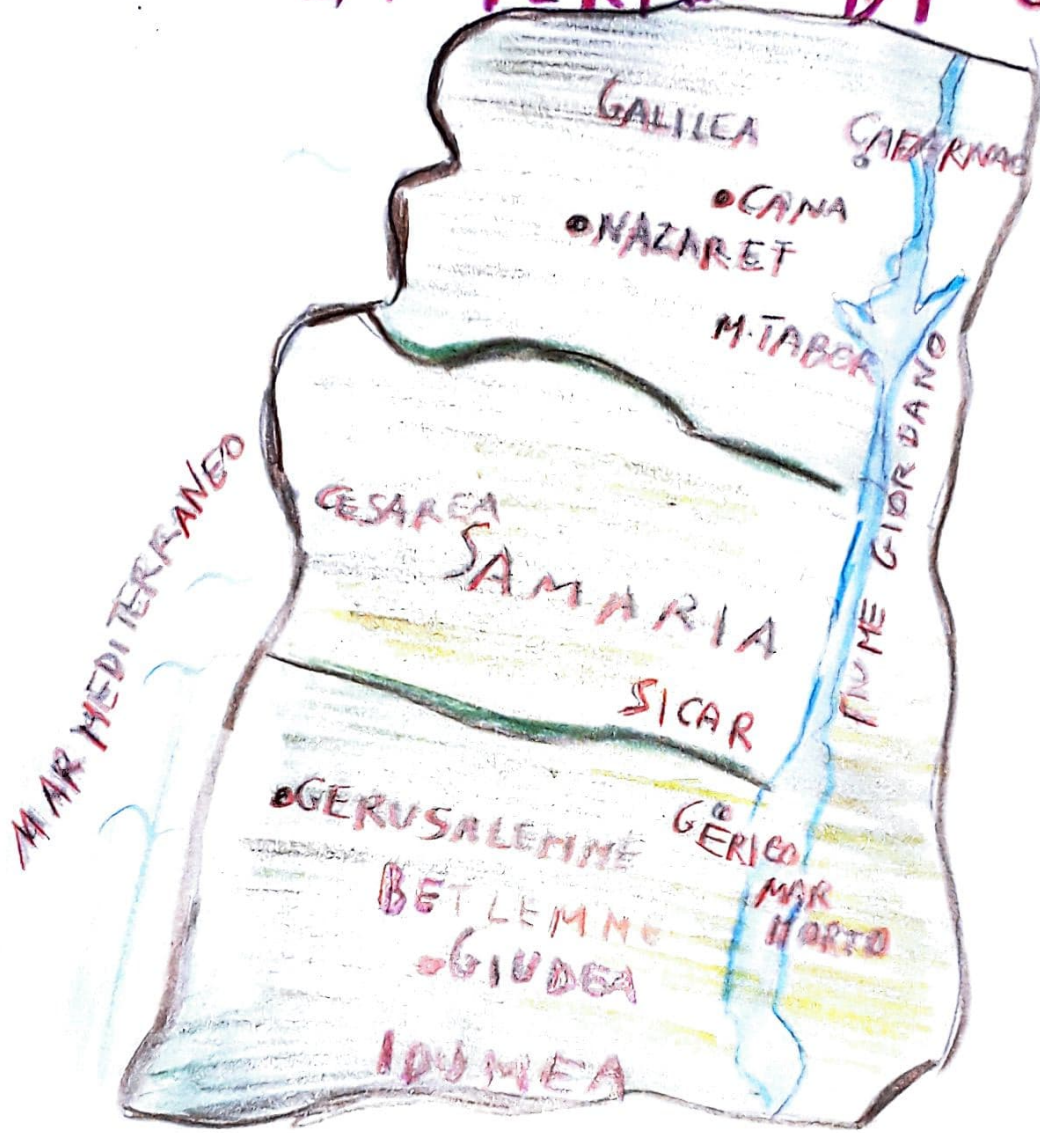 DI
GALILEA
CAFARNAO
CANA
NAZARET
M. TABOR
FIUME GIORDANO
MAR MEDITERRANEO
CESAREA
SAMARIA
SICAR
GERUSALEMME
GERICO
BETLEMME
MAR
MORTO
GIUDEA
IDUMEA